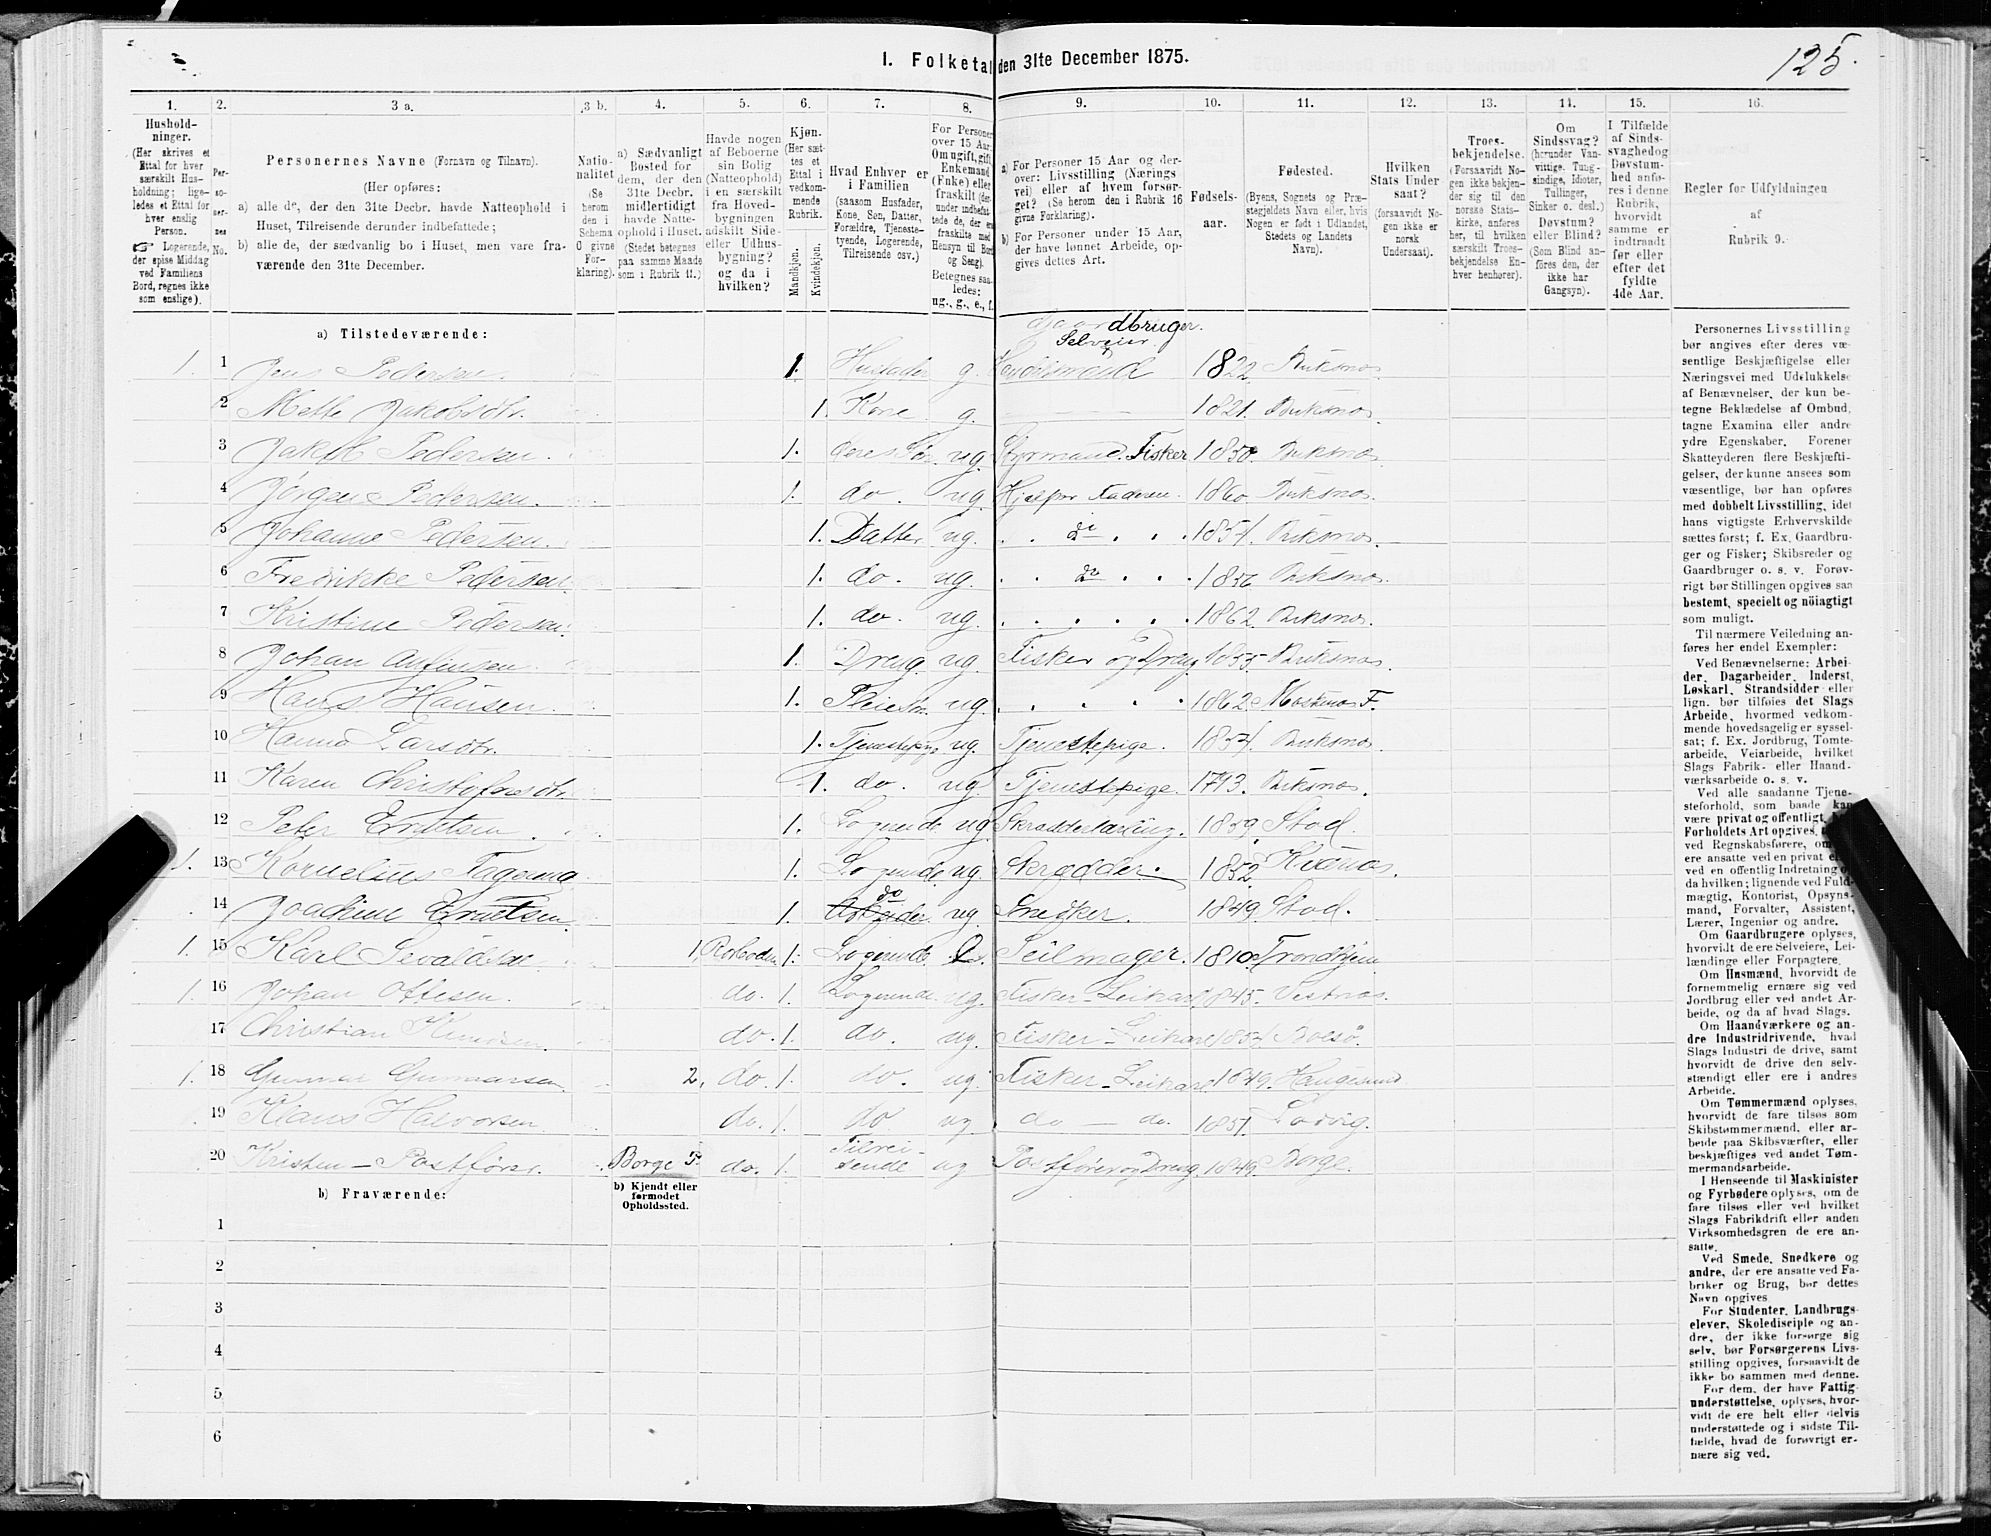 125.
1. Folketal den 31te December 1875.
1. 2. 3 a. 3 b. 4. 5. 6. 7. 8. 9. 10. 11. 12. 13. 14. 15. 16.
Husholdninger. (Her skrives et Ettal for hver særskilt Husholdning; ligeledes et Ettal for hver enslig Person. Logerende, der spise Middag ved Familiens Bord, regnes ikke som enslige).
Personernes No.
Personernes Navne (Fornavn og Tilnavn).
(Her opføres:
a) alle de, der den 31te Decbr. havde Natteophold i Huset, Tilreisende derunder indbefattede;
b) alle de, der sædvanlig bo i Huset, men vare fraværende den 31te December.
Nationalitet (Se herom den i Schema O givne Forklaring).
a) Sædvanligt Bosted for dem, der den 31te Decbr. midlertidigt havde Natteophold i Huset. (Stedet betegnes paa samme Maade som i Rubrik 11.)
Havde nogen af Beboerne sin Bolig (Natteophold) i en særskilt fra Hovedbygningen adskilt Side- eller Udhusbygning? og da i hvilken?
Kjøn. (Her sættes et Ettal i vedkommende Rubrik. Mandkjøn. Kvindekjøn.
Hvad Enhver er i Familien (saasom Husfader, Kone, Søn, Datter, Forældre, Tjenestetyende, Logerende, Tilreisende osv.)
For Personer over 15 Aar: Om ugift, gift, Enkemand (Enke) eller fraskilt
Betegnes saaledes: ug., g., e., f.
a) For Personer 15 Aar og derover: Livsstilling (Næringsvei) eller af hvem forsørget? (Se herom den i Rubrik 16 givne Forklaring).
b) For Personer under 15 Aar, der have lønnet Arbeide, opgives dettes Art.
Fødselsaar.
Fødested. (Byens, Sognets og Præstegjeldets Navn eller, hvis Nogen er født i Udlandet, Stedets og Landets Navn).
Hvilken Stats Undersaat? (forsaavidt Nogen ikke er norsk Undersaat).
Troesbekjendelse. (Forsaavidt Nogen ikke bekjender sig til den norske Statskirke, anføres her, til hvilken særskilt Troesbekjendelse Enhver henhører).
Om Sindssvag? (herunder Vanvittige, Tungsindige, Idioter, Tullinger, Sinker o. desl.) Døvstum? eller Blind? (Som Blind anføres den, der ikke har Gangsyn).
I Tilfælde af Sindssvaghed og Døvstumhed anføres i denne Rubrik, hvorvidt samme er indtraadt før eller efter det fyldte 4de Aar.
Regler for Udfyldningen af Rubrik 9.
a) Tilstedeværende:
Gaardbruger. Selveier.
1. 1 Jens Pedersen 1. Husfader g. 1822 Buksnes
2 Mette Jakobsdtr. 1. Kone g. 1821. Buksnes
3 Jakob Pedersen. 1. deres Søn ug. Styrmand. Fisker 1850. Buksnes
4 Jørgen Pedersen. 1. do. ug. Hjelper Faderen. 1860. Buksnes
5 Johanne Pedersen. 1. Datter ug. do 1854. Buksnes.
6 Fredrikke Pedersen. 1. do. ug. do 1856 Buksnes.
7 Kristine Pedersen. 1. do. ug. 1862. Buksnes.
8 Johan 1. Dreng ug. Fisker og Dreng 1855 Buksnes.
9 Hans Hansen. 1. Pleiesøn ug. 1862
10 Hanna Larsdtr. 1. Tjenestepige ug. Tjenestepige. 1854. Buksnes.
11 Karen Christofersdtr. 1. do. ug. Tjenestepige. 1793. Buksnes.
12 Peter 1. Logerende ug. Skrædderlærling. 1859 Stod.
1. 13 Kornelius 1. Logerende. ug. Skrædder. 1852.
14 Joachim 1. do ug. Snedker. 1849. Stod.
1. 15 Karl Sevaldsen 1. Rorboden 1. Logerende Seilmager. 1810. Trondhjem
1. 16 Johan Ottesen. do. 1. Logerende ug. Fisker - Leikarl 1845. Vestnes.
17 Christian Knudsen. do. 1. do. ug. Fisker - Leikarl 1854 Bolsø.
1. 18 Gunnar Gunnarsen 2. do. 1. do. ug. Fisker - Leikarl 1849. Haugesund
19 Klaus Halvorsen do. 1. do ug do — do. 1851. Ladvig.
20 Kristen - Postfører. Borge do. 1. Tilreisende ug Postfører og Dreng. 1849. Borge.
b) Fraværende:
b) Kjendt eller formodet Opholdssted.
1
2
3
4
5
6
Personernes Livsstilling bør angives efter deres væsentlige Beskjæftigelse eller Næringsvei med Udelukkelse af Benævnelser, der kun betegne Beklædelse af Ombud, tagne Examina eller andre ydre Egenskaber. Forener Skatteyderen flere Beskjæftigelser, der kunne ansees som væsentlige, bør han opføres med dobbelt Livsstilling, idet hans vigtigste Erhvervskilde sættes først; f. Ex. Gaardbruger og Fisker; Skibsreder og Gaardbruger o. s. v. Forøvrigt bør Stillingen opgives saa bestemt, specielt og nöiagtigt som muligt.
Til nærmere Veiledning anføres her endel Exempler:
Ved Benævnelserne: Arbeider, Dagarbeider, Inderst, Løskarl, Strandsidder eller lign. bør tilføies det Slags Arbeide, hvormed vedkommende hovedsagelig er sysselsat; f. Ex. Jordbrug, Tomtearbeide, Veiarbeide, hvilket Slags Fabrik- eller Haandværksarbeide o. s. v.
Ved alle saadanne Tjenesteforhold, som baade kan være privat og offentligt, Forholdets Art opgives, ved Regnskabsførere, om ere ansatte ved en privat eller ved en offentlig Indretning og da hvilken; lignende ved Fuldmægtig, Kontorist, Opsynsmand, Forvalter, Assistent, Lærer, Ingeniør og andre.
Om Gaardbrugere oplyses, hvorvidt de ere Selveiere, Leilændinge eller Forpagtere.
Om Husmænd, hvorvidt de fornemmelig ernære sig ved Jordbrug eller ved andet Arbeide, og da af hvad Slags.
Om Haandværkere og andre Industridrivende, hvad Slags Industri de drive, samt hvorvidt de drive den selvstændigt eller ere i andres Arbeide.
Om Tømmermænd oplyses, hvorvidt de fare tilsøs som Skibstømmermænd, eller arbeide paa Skibsværfter, eller beskjæftiges ved andet Tømmermandsarbeide.
I Henseende til Maskinister og Fyrbødere oplyses, om de fare tilsøs eller ved hvilket Slags Fabrikdrift eller anden Virksomhedsgren de ere ansatte.
Ved Smede, Snedkere og andre, der ere ansatte ved Fabriker og Brug, bør dettes Navn opgives.
For Studenter, Landbrugselever, Skoledisciple og andre, der ikke forsørge sig selv, bør Forsørgerens Livsstilling opgives, forsaavidt de ikke bo sammen med denne.
For dem, der have Fattigunderstøttelse, oplyses, hvorvidt de ere helt eller delvis understøttede og i sidste Tilfælde, hvad de forøvrigt ernære sig ved.